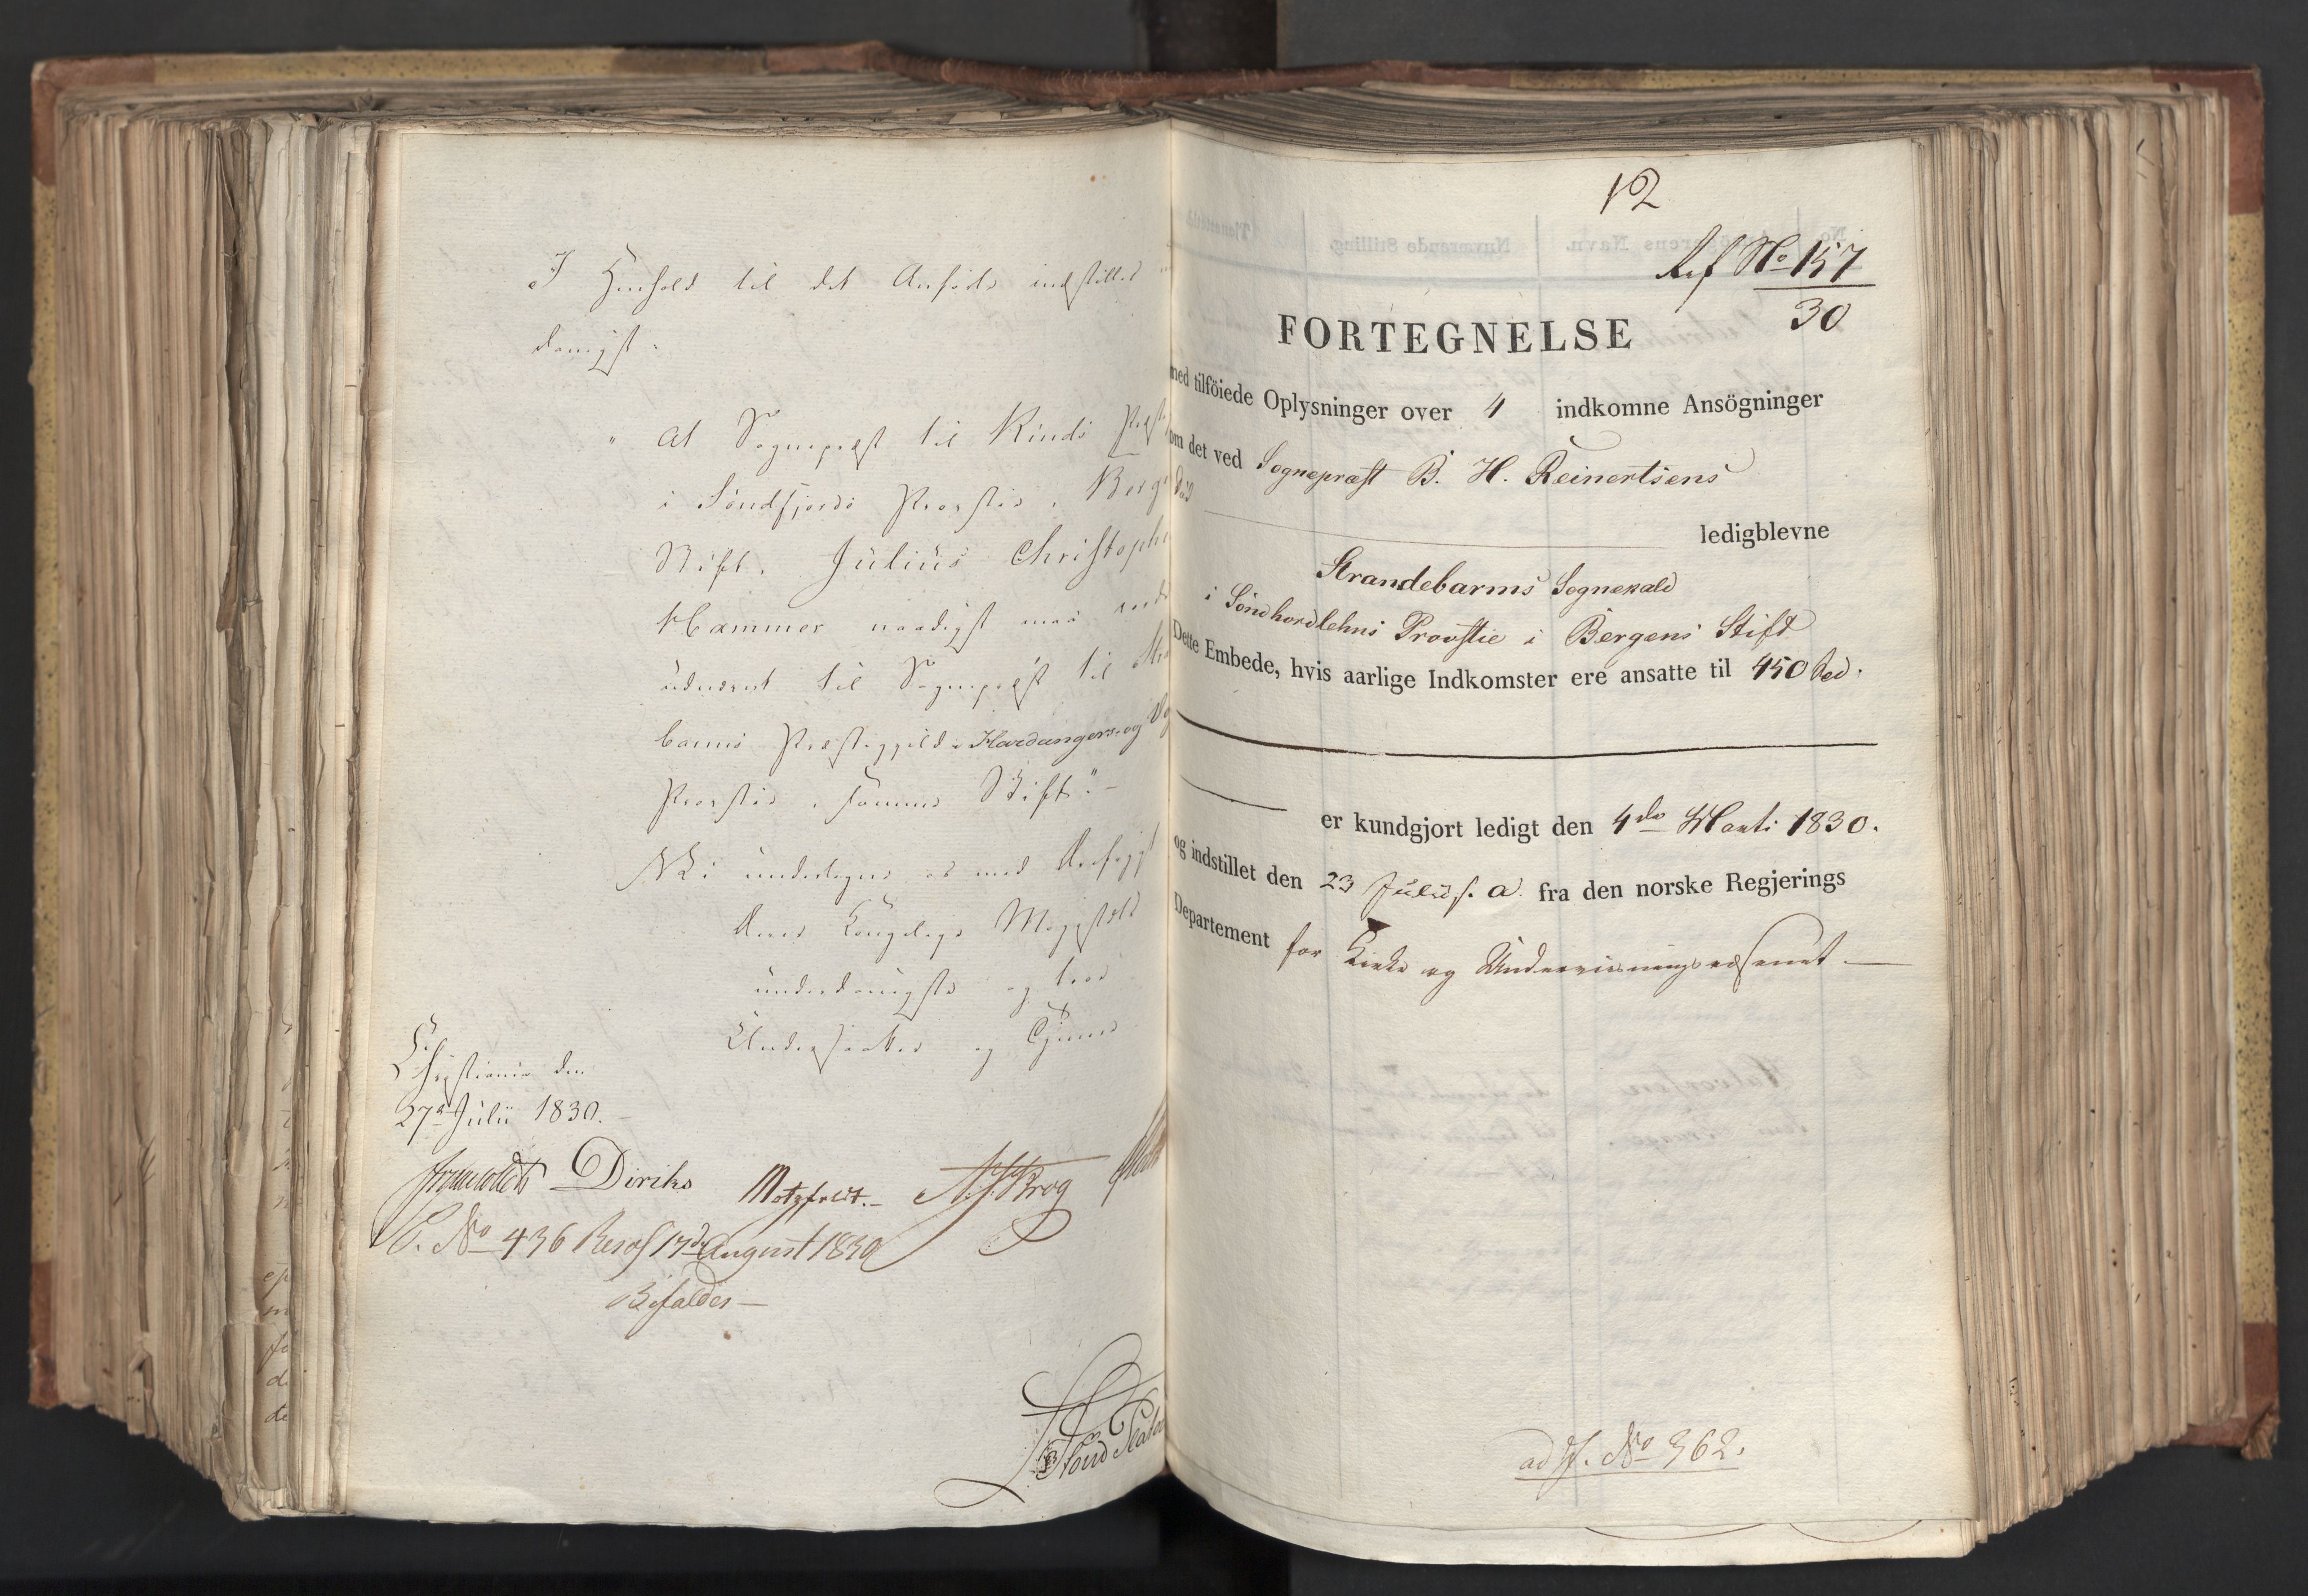 I Henhold til det Anførte indstilles
danigst:
" At Sognepræst til Kinds Præst
i Søndfjords Provstie, Berge
Stift, Julius Christophe
Hammer naadigst maa vorde
udnævnt til Sognepræst til Stra
barms Præstegjeld i Hardangers og Vo
Provstie i samme Stift." -
Vi undertegne os med
Deres Kongelige Majestæts
underdanigste og troe
Undersaatter og Tjenere
Christiania den
27de Julii 1830. -
Diriks Motzfeldt. - Krog
No 436 Resol 17de August 1830
Bifaldes -
12
Ref No 157
30
FORTEGNELSE
med tilföiede Oplysninger over 4 indkomne Ansögninger
om det ved Sognepræst B. H. Reinertsens
Död
ledigblevne
Strandebarms Sognekald
i Söndhordlehns Provstie i Bergens Stift
Dette Embede, hvis aarlige Indkomster ere ansatte til 450 Spd.
er kundgjort ledigt den 4de Marti 1830.
og indstillet den 23 Julii s. a. fra den norske Regjerings
Departement for Kirke og Underviisningsvæsenet. -
ad No 362.